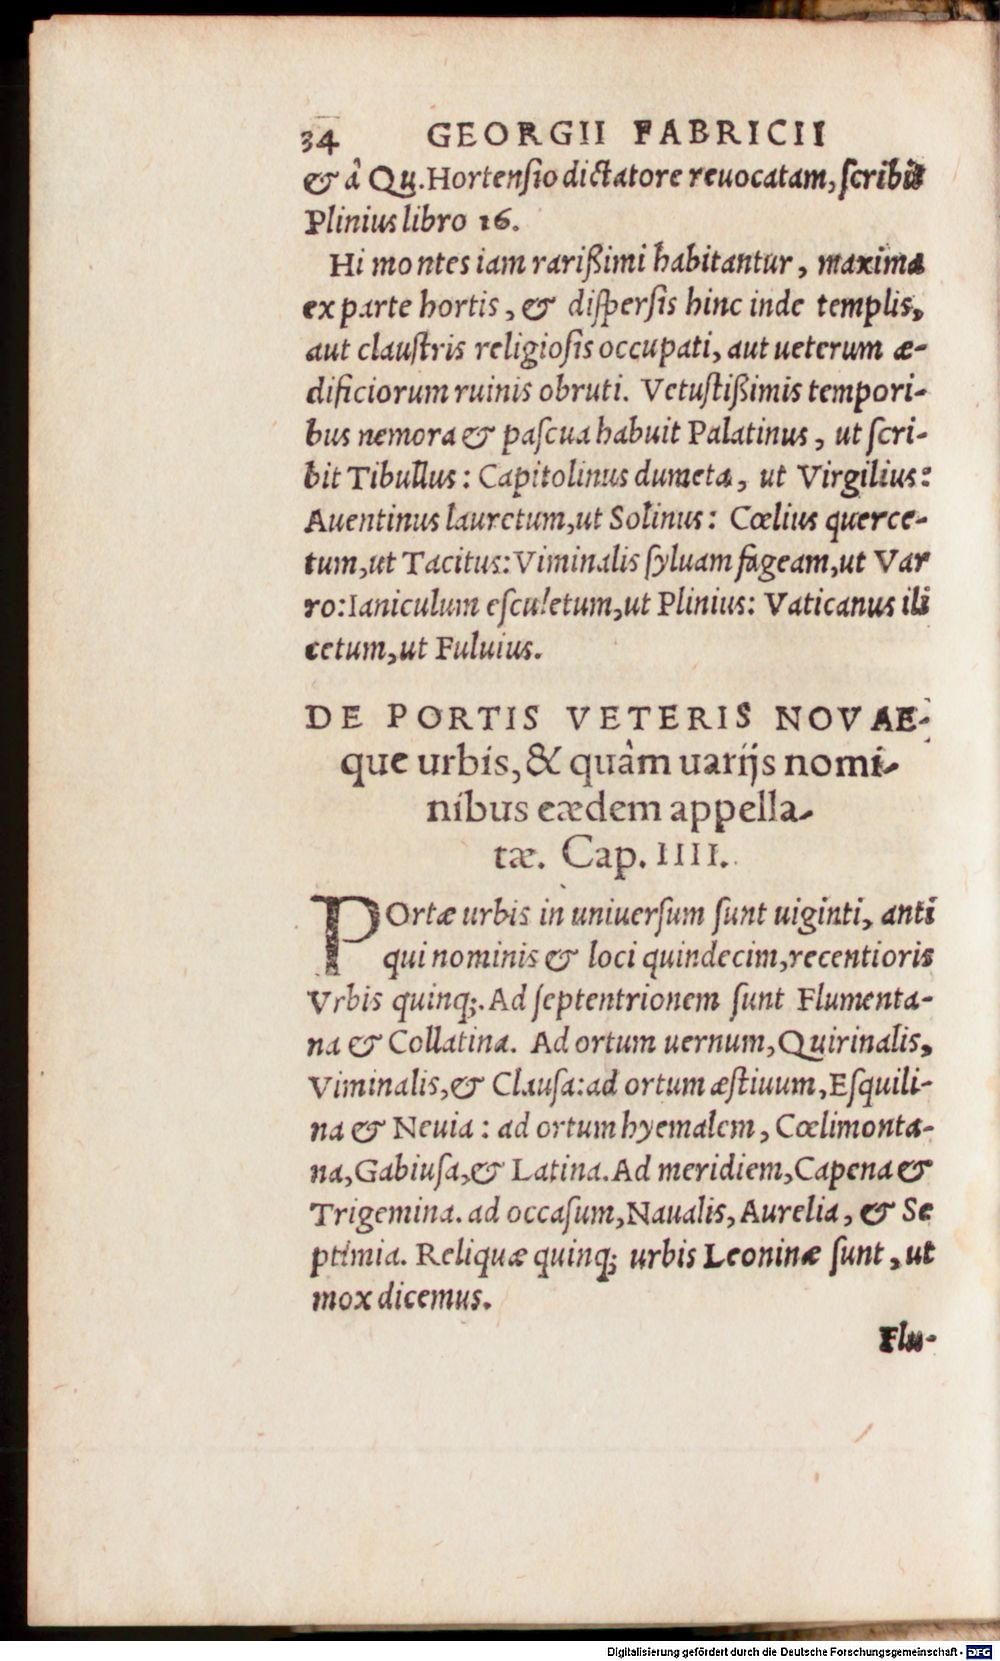 34 GEORGII FABRICII
& â Qu. Hortenſio dictatore reuocatam, ſcribit
Plinius libro 16.
Hi montes iam rarißimi habitantur, maxima
ex parte hortis, & diſperſis hinc inde templis,
aut clauſtris religioſis occupati, aut ueterum æ-
dificiorum ruinis obruti. Vetuſtißimis tempori-
bus nemora & paſcua habuit Palatinus, ut ſcri-
bit Tibullus: Capitolinus dumeta, ut Virgilius:
Auentinus lauretum, ut Solinus: Cœlius querce-
tum, ut Tacitus: Viminalis ſyluam fageam, ut Var
ro: Ianiculum eſculetum, ut Plinius: Vaticanus ili
cetum, ut Fuluius.
DE PORTIS VETERIS NOVAE-
que urbis, & quâm uarijs nomi-
nibus eædem appella-
tæ. Cap. IIII.
POrtæ urbis in uniuerſum ſunt uiginti, anti
qui nominis & loci quindecim, recentioris
Vrbis quinq;. Ad ſeptentrionem ſunt Flumenta-
na & Collatina. Ad ortum uernum, Quirinalis,
Viminalis, & Clauſa: ad ortum æſtiuum, Eſquili-
na & Neuia: ad ortum hyemalem, Cœlimonta-
na, Gabiuſa, & Latina. Ad meridiem, Capena &
Trigemina. ad occaſum, Naualis, Aurelia, & Se
ptimia. Reliquæ quinq; urbis Leoninæ ſunt, ut
mox dicemus.
Flu-
Digitalisierung gefördert durch die Deutsche Forschungsgemeinschaft - DFG